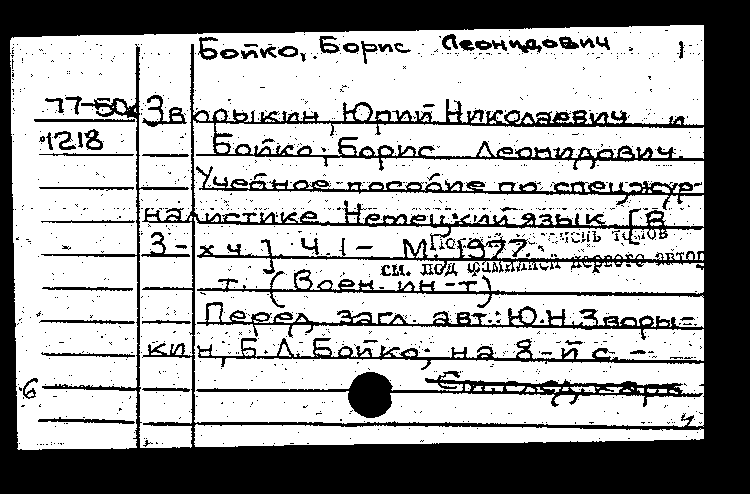 Бойко, Борис Леонидович. 1
77-50
1218
Зворыкин, Юрий Николаевич и
Бойко, Борис Леонидович.
Учебное пособие по спецжур-
налистике. Немецкий язык. [В
3-х ч.]. Ч. 1- М., 1977.
томов
см. под фамилией первого автор
т. (Воен. ин-т)
Перед загл. авт.: Ю.Н. Зворы-
кин, Б.Л. Бойко; на 8-й с. -
6
См. след. карт.